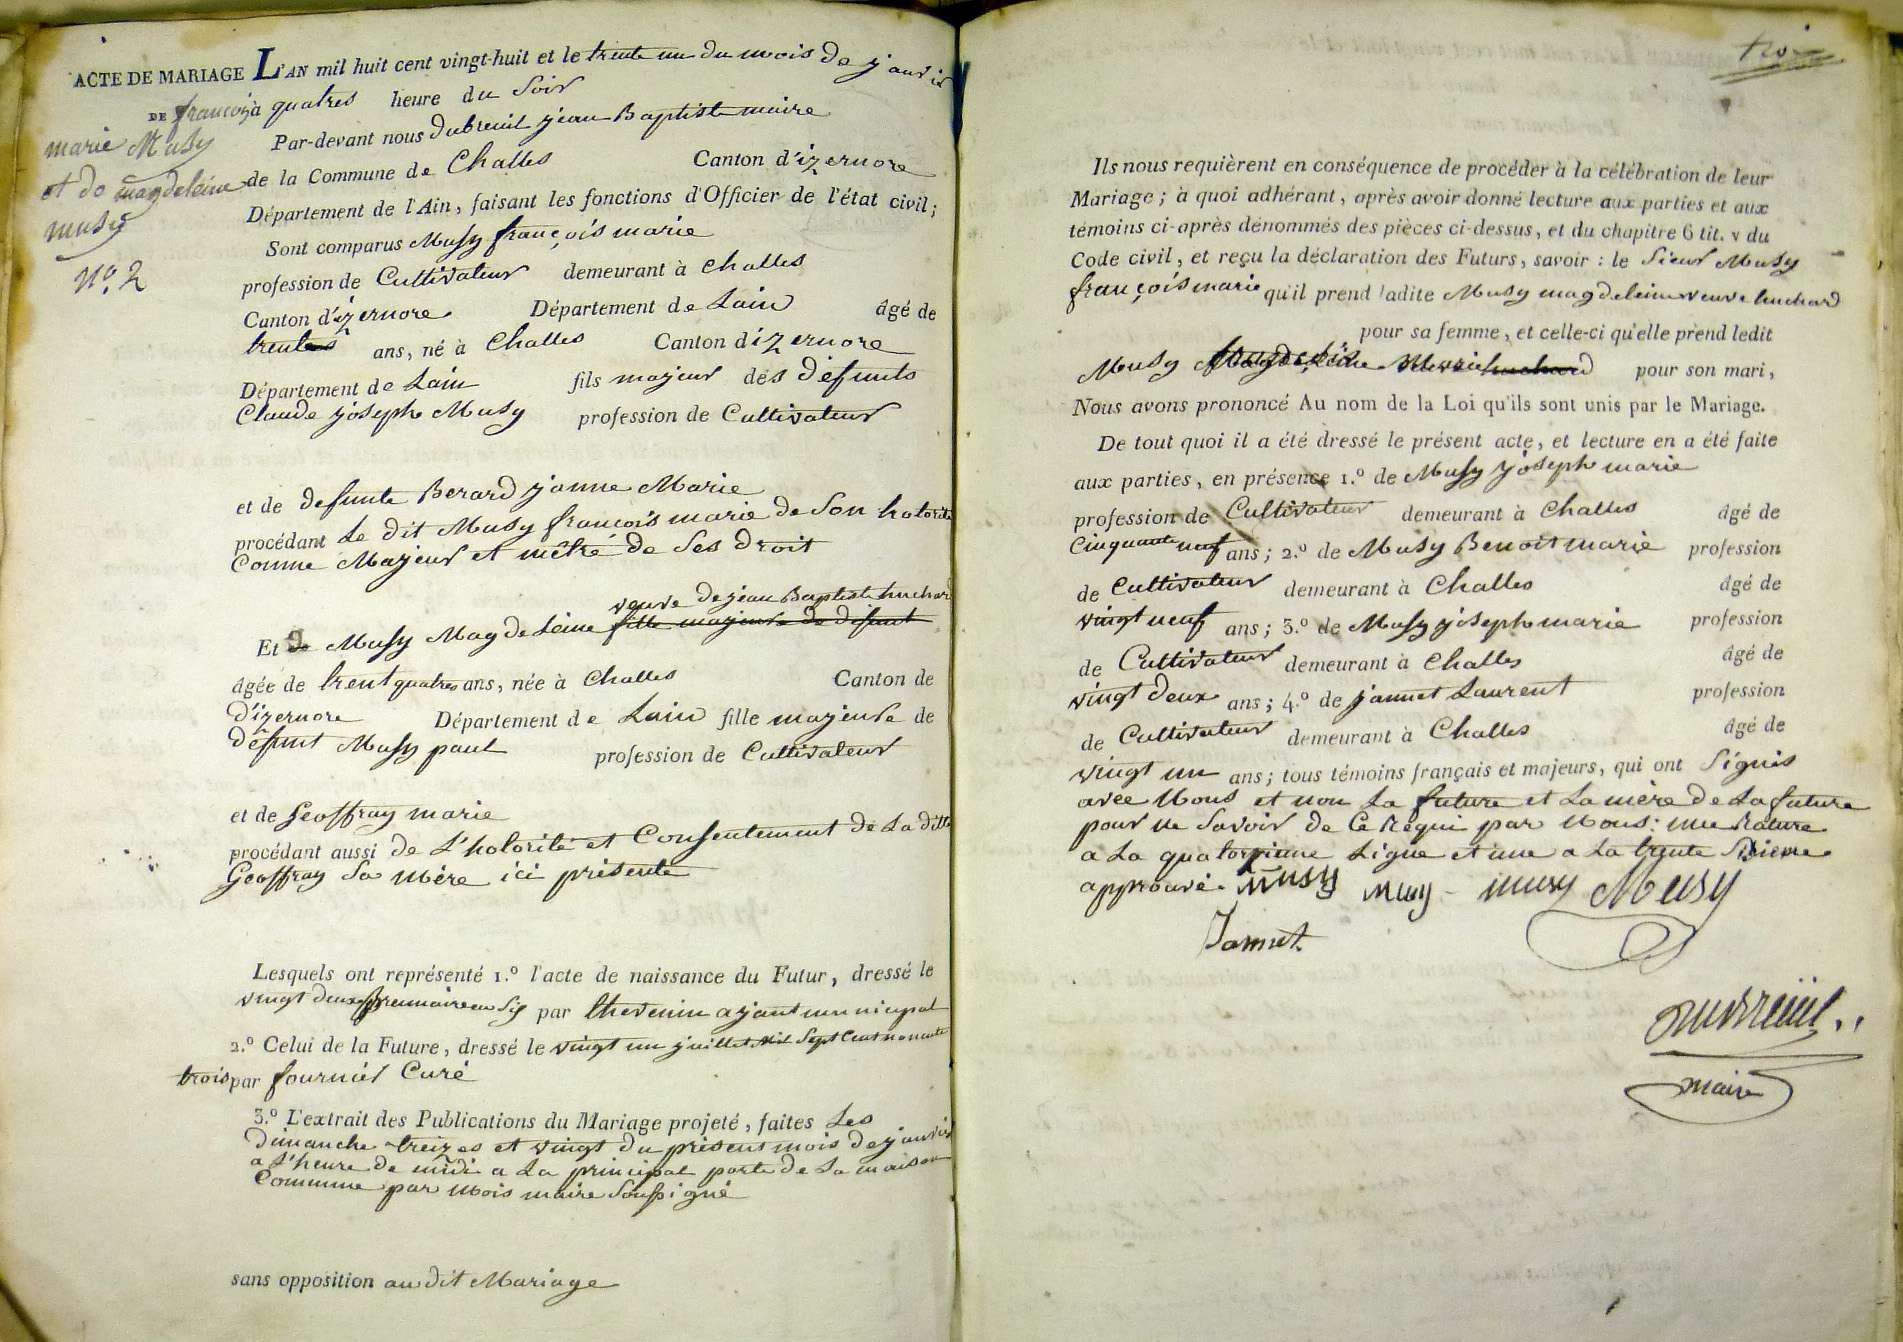 ACTE DE MARIAGE L'AN mil huit cent vingt-huit et le trente un du mois de janvier
DE françois à quatres heure du Soir
marie Musy
et do magdeleine
musy
N.o 2
Par-devant nous dubreuil jean Baptiste maire
de la Commune de Challes Canton d'izernore
Département de l'Ain, faisant les fonctions d'Officier de l'état civil;
Sont comparus Musy françois marie
profession de Cultivateur demeurant à Challes
Canton d'izernore Département de Lain âgé de
trentes ans, né à Challes Canton dizernore
Département de Lain fils majeur des défunts
Claude joseph Musy profession de Cultivateur
et de defunte Berard janne Marie
procédant Le dit Musy francois marie de Son hotorité
Comme Majeur et mêtre de Ses droit
veuve de jean Baptiste huchard
Et de Musy Magdeleine fille majeure de défunt
âgée de trent quatres ans, née à Challes Canton de
d'izernore Département de Lain fille majeure de
défunt Musy paul profession de Cultivateur
et de Geoffray marie
procédant aussi de L'hotorité et Consentement de La ditte
Geoffray Sa Mère ici présente
Lesquels ont représenté 1.o l'acte de naissance du Futur, dressé le
vingt deux brumaire an Six par thevenin ajant municipal
2.o Celui de la Future, dressé le vingt un juillet Mil Sept Cent nonante
trois par fournier Curé
3.o L'extrait des Publications du Mariage projeté, faites Les
dimanche treizes et vingt du présent mois de janvier
a L'heure de midi a La principal porte de La maison
Commune par Nois maire Soussigné
sans opposition au dit Mariage
trois
Ils nous requièrent en conséquence de procéder à la célébration de leur
Mariage; à quoi adhérant, après avoir donné lecture aux parties et aux
témoins ci-après dénommés des pièces ci-dessus, et du chapitre 6 tit. v du
Code civil, et reçu la déclaration des Futurs, savoir: le Sieur Musy
françois marie qu'il prend ladite Musy magdeleine veuve huchard
pour sa femme, et celle-ci qu'elle prend ledit
Musy françois Marie huchard pour son mari,
Nous avons prononcé Au nom de la Loi qu'ils sont unis par le Mariage.
De tout quoi il a été dressé le présent acte, et lecture en a été faite
aux parties, en présence 1.o de Musy joseph marie
profession de Cultivateur demeurant à Challes âgé de
Cinquante neuf ans; 2.o de Musy Benoit marie profession
de Cultivateur demeurant à Challes âgé de
vingt neuf ans; 3.o de Musy joseph marie profession
de Cultivateur demeurant à Challes âgé de
vingt deux ans; 4.o de jannet Laurent profession
de Cultivateur demeurant à Challes âgé de
vingt un ans; tous témoins français et majeurs, qui ont Signés
avec Nous et non La future et La mère de La future
pour ne Savoir de Ce Requi par Nous: une Rature
a La quatorzieme Ligne et une a La trente Sixieme
approuvé. Musy Musy musy Musy
Jannet
Dubreuil
maire